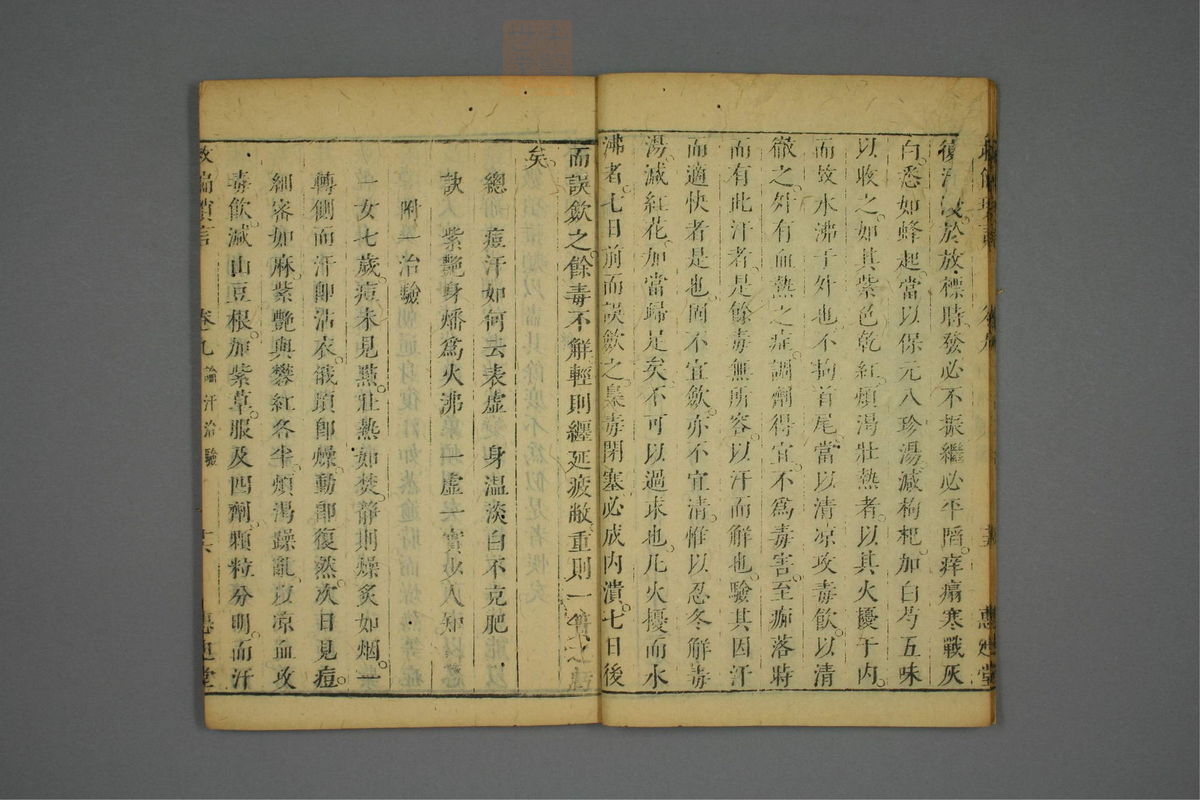 復汗沒於放標時發必不振繼必平陷痒癟寒戰灰
白悉如蜂起當以保元八珍湯減枸杞加白芍五味
以收之如其紫色乾紅煩渴壯熱者以其火擾于內
而致水沸于外也不拘首尾當以清凉攻毒飲以清
徹之外有血熱之症調劑得宜不爲毒害至痂落時
而有此汗者是餘毒無所容以汗而解也驗其因汗
而適快者是也固不宜歛亦不宜清惟以忍冬解毒
湯減紅花加當歸足矣不可以過求也凡火擾而水
沸者七日前而誤歛之梟毒閉塞必成內潰七日後
而誤歛之餘毒不解輕則纏延疲敝重則一
矣
總 痘汗如何去表虛 身溫淡白不克肥
訣 紫艷身燔爲火沸 一虛一實少人知
附一治驗
一女七歲痘未見㸃壯熱如焚靜則燥炙如烟一
轉側而汗卽沾衣俄頃卽燥動卽復然次日見痘
細密如麻紫艷與礬紅各半煩渴躁亂以凉血攻
毒飲減山豆根加紫草服及四劑顆粒分明而汗
救偏瑣言 卷九 論汗治驗 惠迪堂